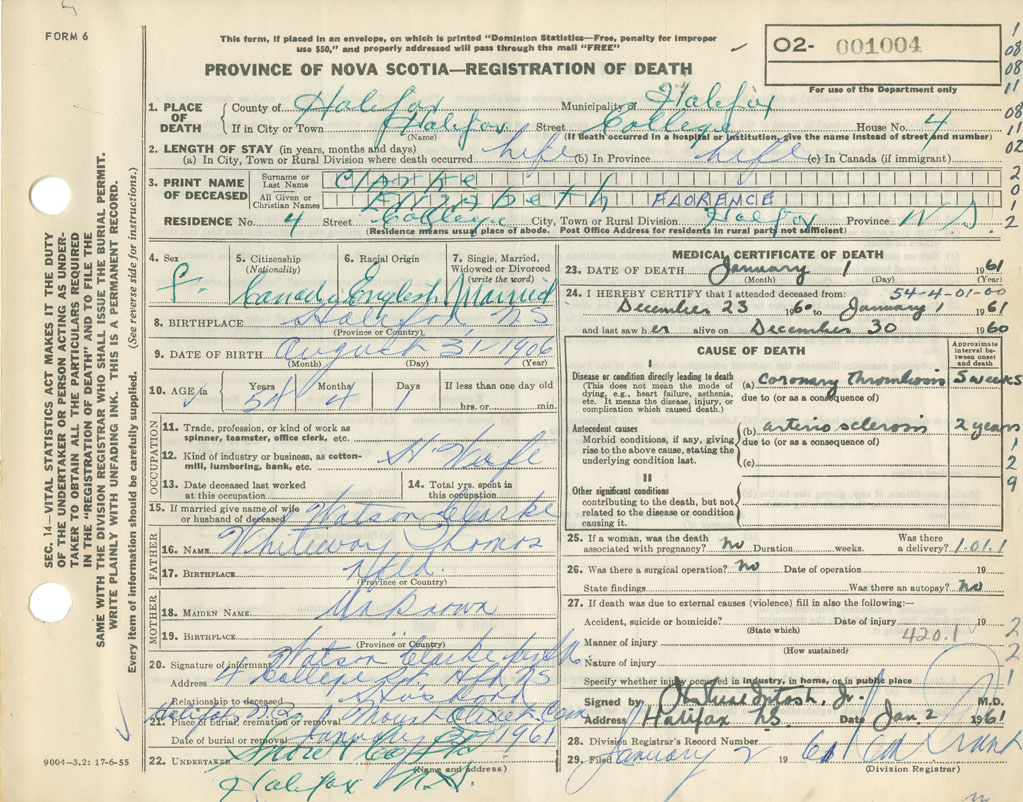 FORM 6
This form, if placed in an envelope, on which is printed "Dominion Statistics—Free, penalty for improper
use $50," and properly addressed will pass through the mail "FREE"
O2- 001004
For use of the Department only
PROVINCE OF NOVA SCOTIA—REGISTRATION OF DEATH
1. PLACE OF DEATH
County of Halifax Municipality of Halifax
If in City or Town Halifax Street College House No. 4
(Name) (If death occurred in a hospital or institution, give the name instead of street and number)
2. LENGTH OF STAY (in years, months and days)
(a) In City, Town or Rural Division where death occurred life (b) In Province life (c) In Canada (if immigrant)
3. PRINT NAME OF DECEASED
Surname or Last Name Clarke
All Given or Christian Names Elizabeth FLORENCE
RESIDENCE No. 4 Street College City, Town or Rural Division Halifax Province N.S.
(Residence means usual place of abode. Post Office Address for residents in rural part not sufficient)
4. Sex F.
5. Citizenship (Nationality) Canada
6. Racial Origin English
7. Single, Married, Widowed or Divorced (write the word) Married
8. BIRTHPLACE Halifax, N.S.
(Province or Country)
9. DATE OF BIRTH August 31 1906
(Month) (Day) (Year)
10. AGE Years 54 Months 4 Days 1 If less than one day old
hrs. or min.
OCCUPATION
11. Trade, profession, or kind of work as
spinner, teamster, office clerk, etc.
12. Kind of industry or business, as cotton-
mill, lumbering, bank, etc. H Wife
13. Date deceased last worked
at this occupation
14. Total yrs. spent in
this occupation
15. If married give name of wife
or husband of deceased Watson Clarke
FATHER
16. NAME Whiteway Thomas
17. BIRTHPLACE Nfld.
(Province or Country)
MOTHER
18. MAIDEN NAME Unknown
19. BIRTHPLACE "
(Province or Country)
20. Signature of informant Watson Clarke
Address 4 College St. Hfx NS
Relationship to deceased Husband
21. Place of burial, cremation or removal Halifax Mount Olivet Cem
Date of burial or removal January 1961
22. UNDERTAKER Snow
Halifax N.S.
(Name and address)
9004—3.2: 17-6-55
MEDICAL CERTIFICATE OF DEATH
23. DATE OF DEATH January 1 1961
(Month) (Day) (Year)
24. I HEREBY CERTIFY that I attended deceased from: 54-4-01-00
December 23 1960 to January 1 1961
and last saw her alive on December 30 1960
CAUSE OF DEATH
Approximate interval between onset and death
I
Disease or condition directly leading to death
(This does not mean the mode of
dying, e.g., heart failure, asthenia,
etc. It means the disease, injury, or
complication which caused death.)
(a) Coronary Thrombosis 5 weeks
due to (or as a consequence of)
Antecedent causes
Morbid conditions, if any, giving
rise to the above cause, stating the
underlying condition last.
(b) arterio sclerosis 2 years
due to (or as a consequence of)
(c)
II
Other significant conditions
contributing to the death, but not
related to the disease or condition
causing it.
25. If a woman, was the death
associated with pregnancy? no Duration weeks. Was there
a delivery? 1.01.1
26. Was there a surgical operation? no Date of operation 19
State findings Was there an autopsy? No
27. If death was due to external causes (violence) fill in also the following:—
Accident, suicide or homicide? Date of injury 19
(State which)
420.1
Manner of injury
(How sustained)
Nature of injury
Specify whether injury occurred in industry, in home, or in public place
Signed by Jr. M.D.
Address Halifax N.S. Date Jan. 2 1961
28. Division Registrar's Record Number
29. Filed January 2 1961
(Division Registrar)
SEC. 14—VITAL STATISTICS ACT MAKES IT THE DUTY
OF THE UNDERTAKER OR PERSON ACTING AS UNDER-
TAKER TO OBTAIN ALL THE PARTICULARS REQUIRED
IN THE "REGISTRATION OF DEATH" AND TO FILE THE
SAME WITH THE DIVISION REGISTRAR WHO SHALL ISSUE THE BURIAL PERMIT.
WRITE PLAINLY WITH UNFADING INK. THIS IS A PERMANENT RECORD.
Every item of information should be carefully supplied. (See reverse side for instructions.)
1
08
08
11
08
11
02
2
0
1
2
1
2
9
2
2
1